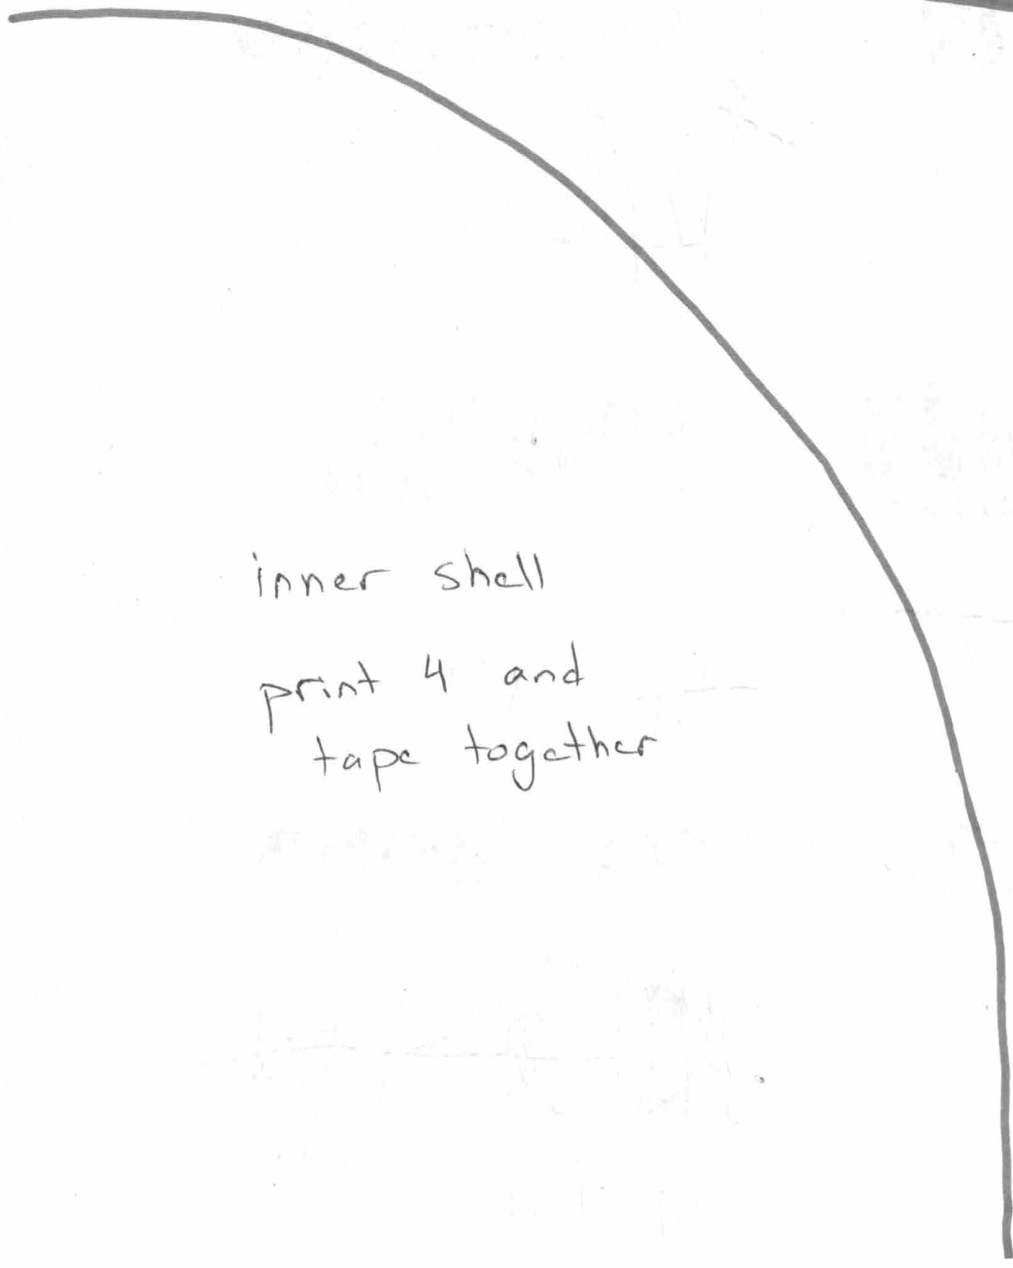 inner shell
print 4 and
tape together